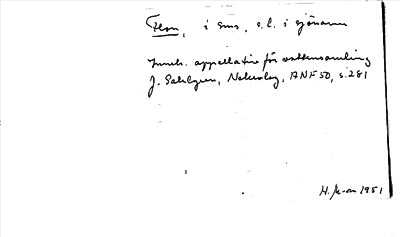 Flen, i sms, s.l. i sjönamn
Inneh. appellativ för vattensamling
J. Sahlgren, Nekrolog, ANF 50, s. 281
1951